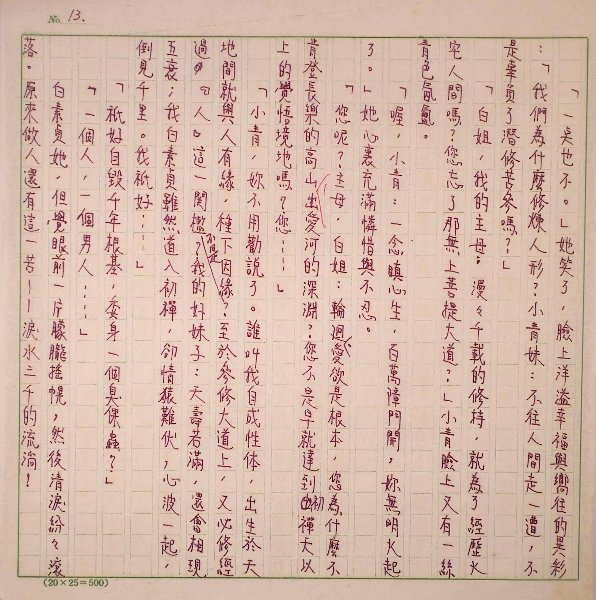 No. 13.
「一點也不。」她笑了，臉上洋溢幸福與嚮往的異彩
：「我們為什麼修煉人形？小青妹：不往人間走一遭，不
是辜負了潛修苦參嗎？」
「白姐，我的主母：漫々千載的修持，就為了經歷火
宅人間嗎？您忘了那無上菩提大道？」小青臉上又有一絲
青色氤氳。
「喔，小青：一念瞋心生，百萬障門開，妳無明火起
了。」她心裏充滿憐惜與不忍。
「您呢？主母，白姐：輪迴愛欲是根本，您為什麼不
肯登長樂的高山出愛河的深淵？您不是早就達到初禪天以
上的覺悟境地嗎？您：：」
「小青，妳不用勸說了。誰叫我自成性体，出生於天
地間就與人有緣，種下因緣？至於參修大道上，又必修經
過「人」這一關檻，不是麼？我的好妹子：天壽若滿，還會相現
五衰；我白素貞雖然道入初禪，卻情猿難伏，心波一起，
倒見千里。我祇好：：」
「祇好自毀千年根基，委身一個臭保蟲？」
「一個人，一個男人：：」
白素貞她，但覺眼前一片朦朧搖幌，然後清淚紛々滾
落。原來做人還有這一苦——淚水三千的流淌！
(20×25=500)